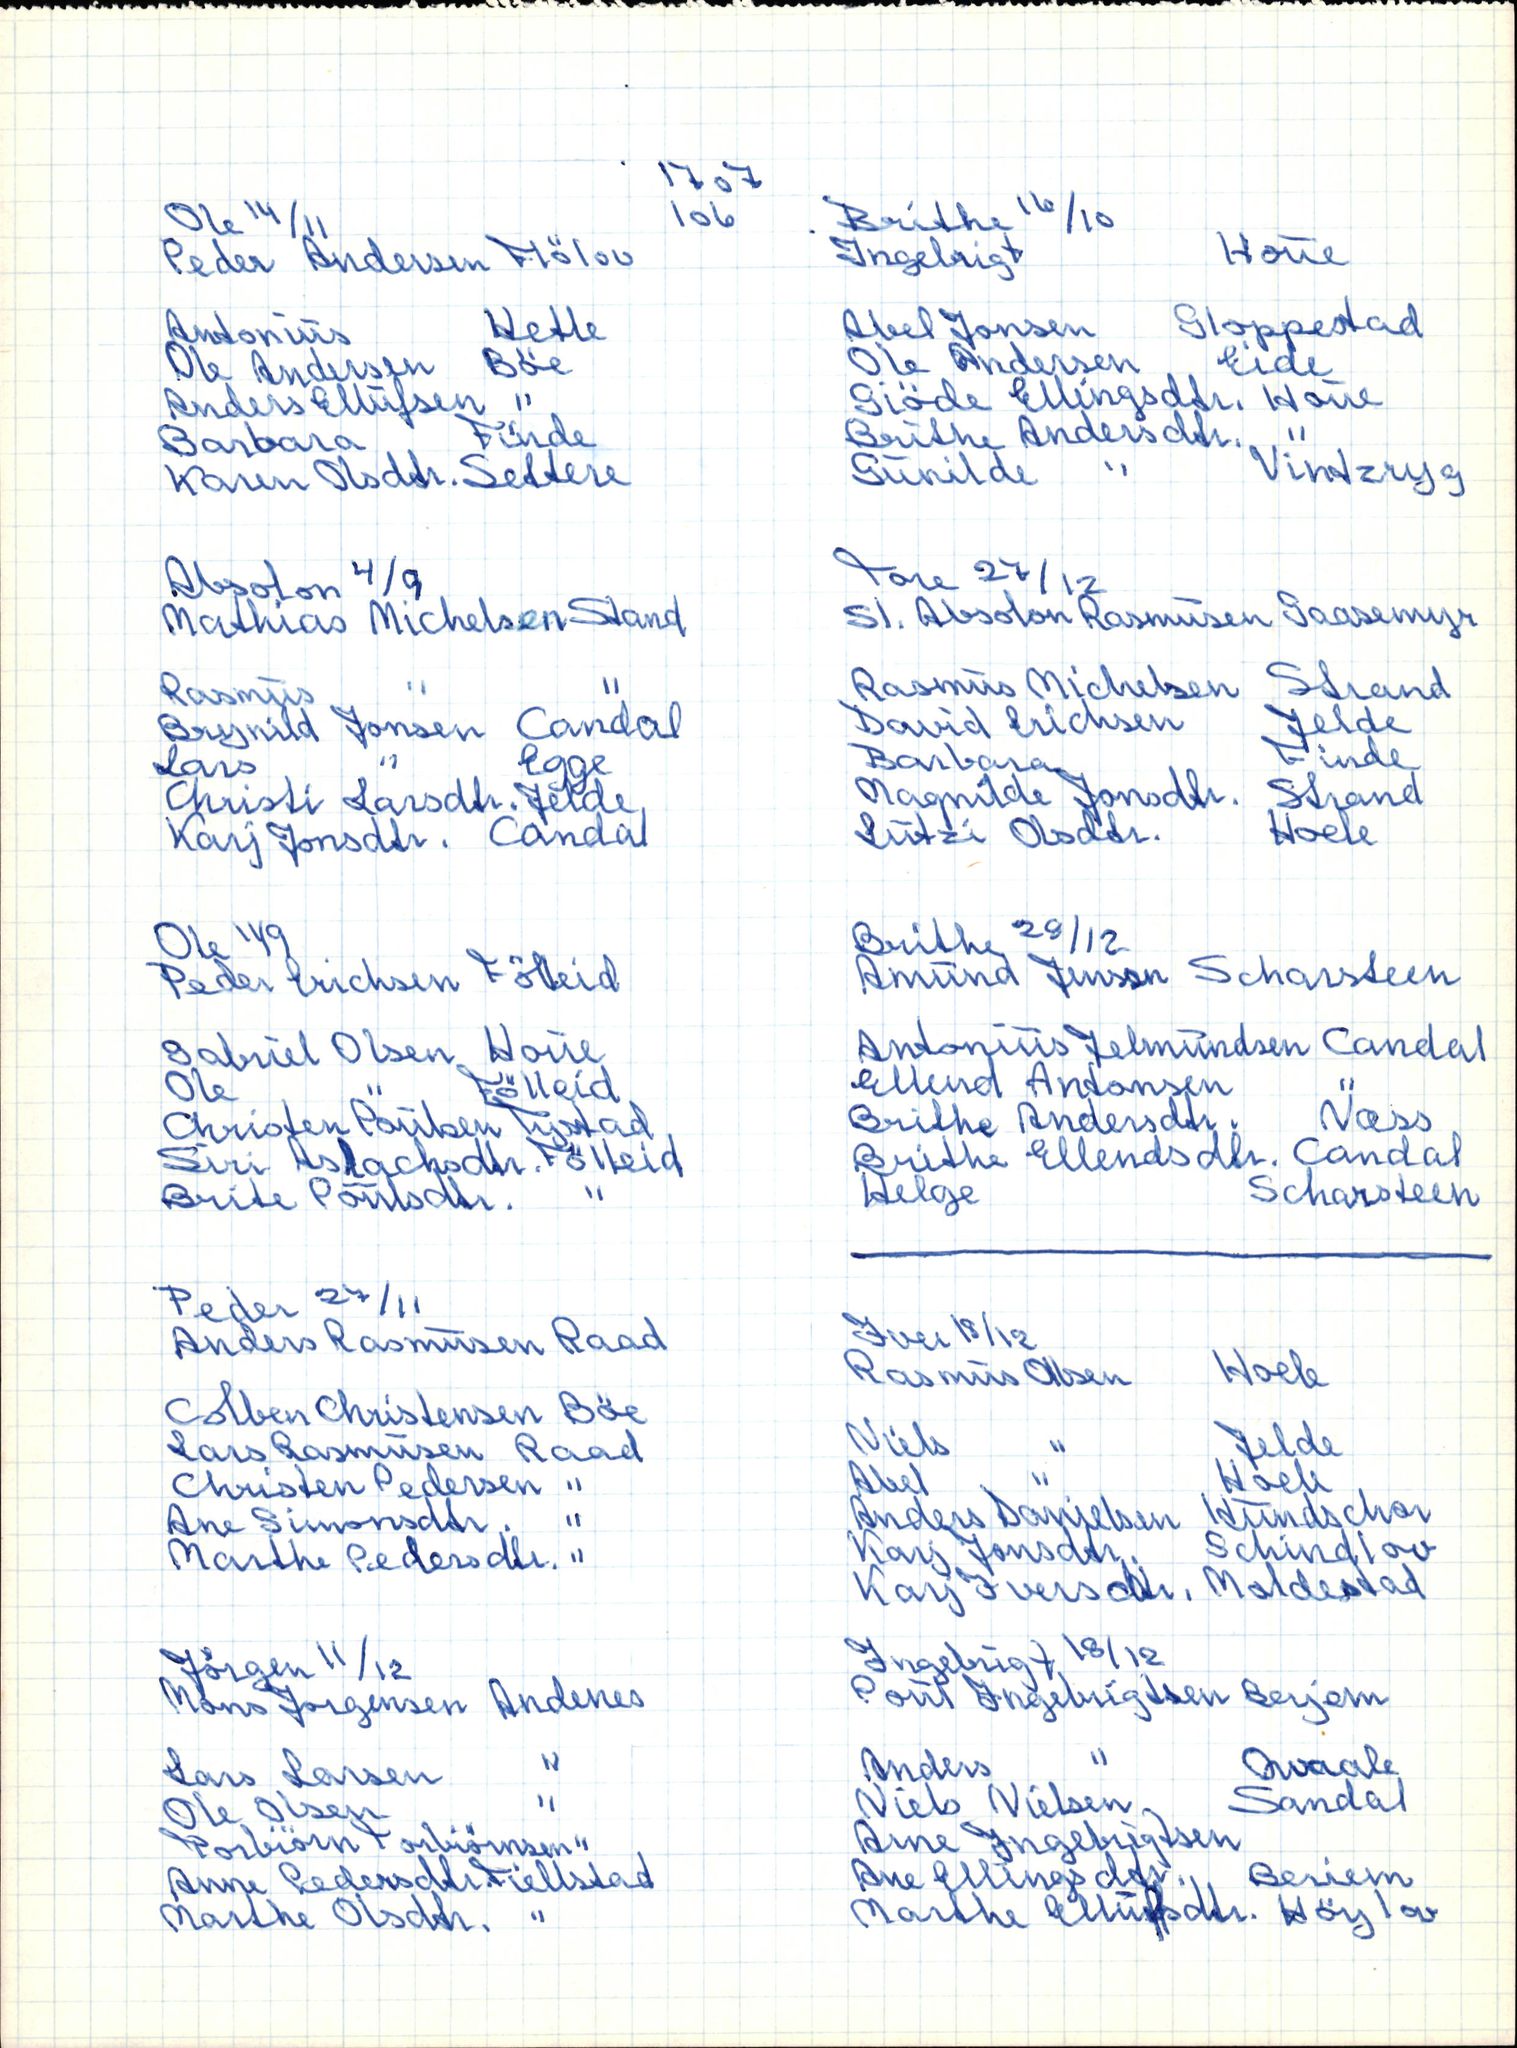 1707
106
Ole 14/11
Peder Andersen Flölov
Antoniüs Hetle
Ole Andersen Böe
Anders Ellüfsen "
Barbara Fürde
Karen Olsdtr. Settere
Absolon 4/9
Mathias Michelsen Stand
Rasmüs " "
Brynild Jonsen Candal
Lars " Egge
Christi Larsdtr. Jelde
Karj Jonsdtr. Candal
Ole
Peder Erichsen Fölleid
Gabriel Olsen Hoüe
Ole " Fölleid
Christen Poülsen Tystad
Siri Aslachsdtr. Fölleid
Brite Poülsdtr. "
Peder 27/11
Anders Rasmüsen Raad
Colben Christensen Böe
Lars Rasmüsen Raad
Christen Pedersen "
Ane Simonsdtr. "
Marthe Pedersdtr. "
Jörgen 11/12
Mons Jorgensen Andenes
Lars Larsen "
Ole Olsen "
Torbiörn Torbiörnsen "
Anne Pedersdtr. Fiellstad
Marthe Olsdtr. "
Brithe 16/10
Ingebrigt Hoüe
Abel Jonsen Gloppestad
Ole Andersen Eide
Giöde Ellingsdtr. Hoüe
Brithe Andersdtr. "
Günilde " Vintzryg
Tore 27/12
Sl. Absolon Rasmüsen Gaasemyr
Rasmüs Michelsen Strand
David Erichsen Jelde
Barbara Finde
Magnilde Jonsdtr. Strand
Lützi Olsdtr. Hoele
Brithe 28/12
Amünd Jensen Scharsteen
Antoniüs Jelmündsen Candal
Ellend Antonsen "
Brithe Andersdtr. Næss
Brithe Ellendsdtr. Candal
Helge Scharsteen
Iver 18/12
Rasmüs Olsen Hoele
Niels " Jelde
Abel " Hoele
Anders Danjelsen Hündschor
Karj Jonsdtr. Schindlov
Karj Iversdtr. Moldestad
Ingebrigt 18/12
Poül Ingebrigtsen Berjem
Anders " Qvaale
Niels Nielsen Sandal
Arne Ingebrigtsen
Ane Ellingsdtr. Beriem
Marthe Ellüfsdtr. Höylov